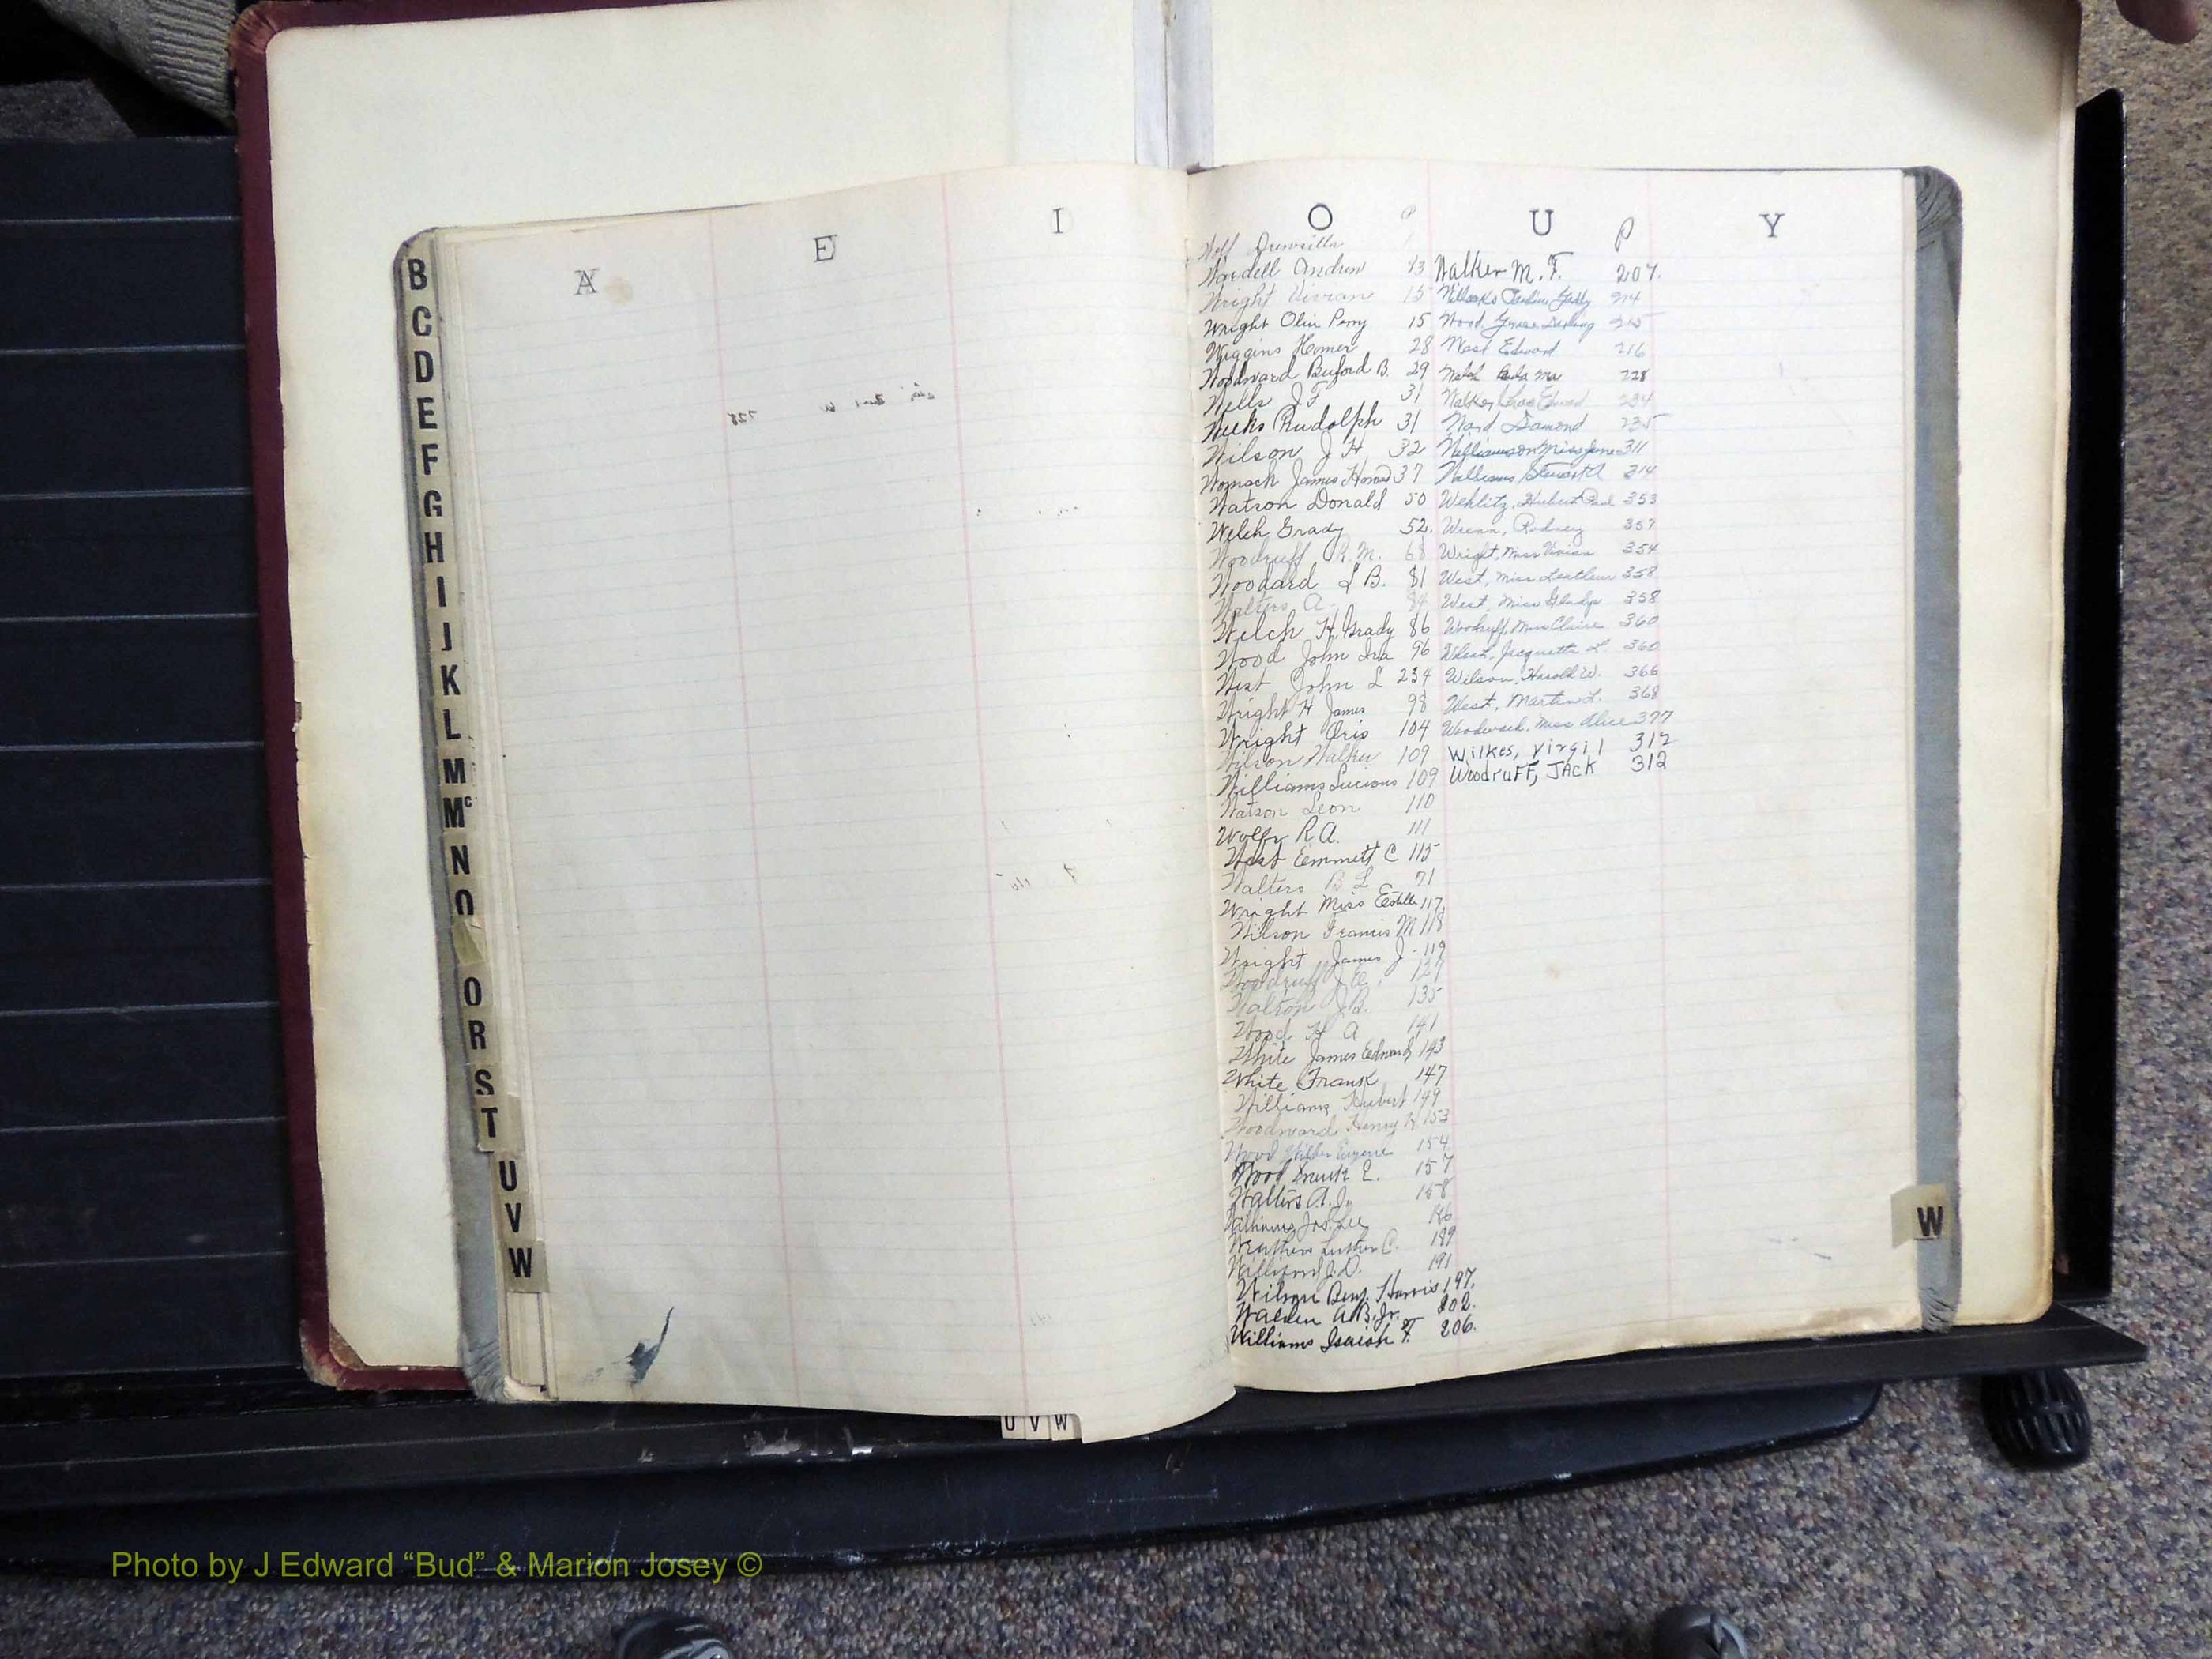 A E I
B
C
D
E
F
G
H
I
J
K
L
M
Mc
N
O
O
R
S
T
U
V
W
U V W
O P U P Y
Wardell Andrew 13
Wright Vivian 15
Wright Olin Perry 15
Wiggins Homer 28
Woodward Buford B. 29
Wells J F 31
Weeks Rudolph 31
Wilson J H 32
Womack James Howard 37
Watson Donald 50
Welch Grady 52.
Woodruff R. M. 68
Woodard L B. 81
Walters A.
Welch H. Grady 86
Wood John Ira 96
West John L 234
Wright H James 98
Wright Iris 104
Wilson Walker 109
Williams Lucious 109
Watson Leon 110
Wolfe R A. 111
West Emmett C 115
Walters B L 71
Wright Miss Estelle 117
Wilson Francis M 118
Wright James J - 119
Woodruff J. E. 127
Walton J. B. 135
Wood H A 141
White James Edward 143
White Frank 147
Williams Hubert 149
Woodward Henry H 153
Wood Eugene 154
Wood Frank E. 157
Walters A. Jr. 158
Williams Jas. Lee
Luther C. 189
J. D. 191
Wilson Benj. Harris 197.
Walden A. B. Jr. 202.
Williams Isaiah F. 206.
Walker M. F. 207.
214
Wood, Grace 215
West Edward 216
228
Walker Edward 234
Ward Damond 235
Williamson Miss Jane 311
Williams Stewart A 314
Wehlitz, Hubert Paul 353
Wrenn, Rodney 357
Wright, Miss Vivian 354
West, Miss 358
West, Miss Gladys 358
Woodruff, Miss Claire 360
West, Jacquetta L. 360
Wilson, Harold W. 366
West, Martin L. 368
Woodward, Miss Alice 377
Wilkes, Virgil 312
WoodruFF, JAck 312
W
Photo by J Edward “Bud” & Marion Josey ©